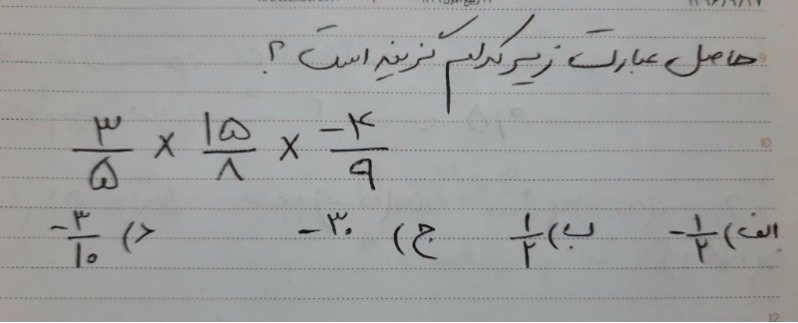 حاصل عبارت زیر کدام گزینه است ؟
۳/۵ × ۱۵/۸ × -۴/۹
الف) -۱/۲ ب) ۱/۲ ج) -۳۰ د) -۳/۱۰